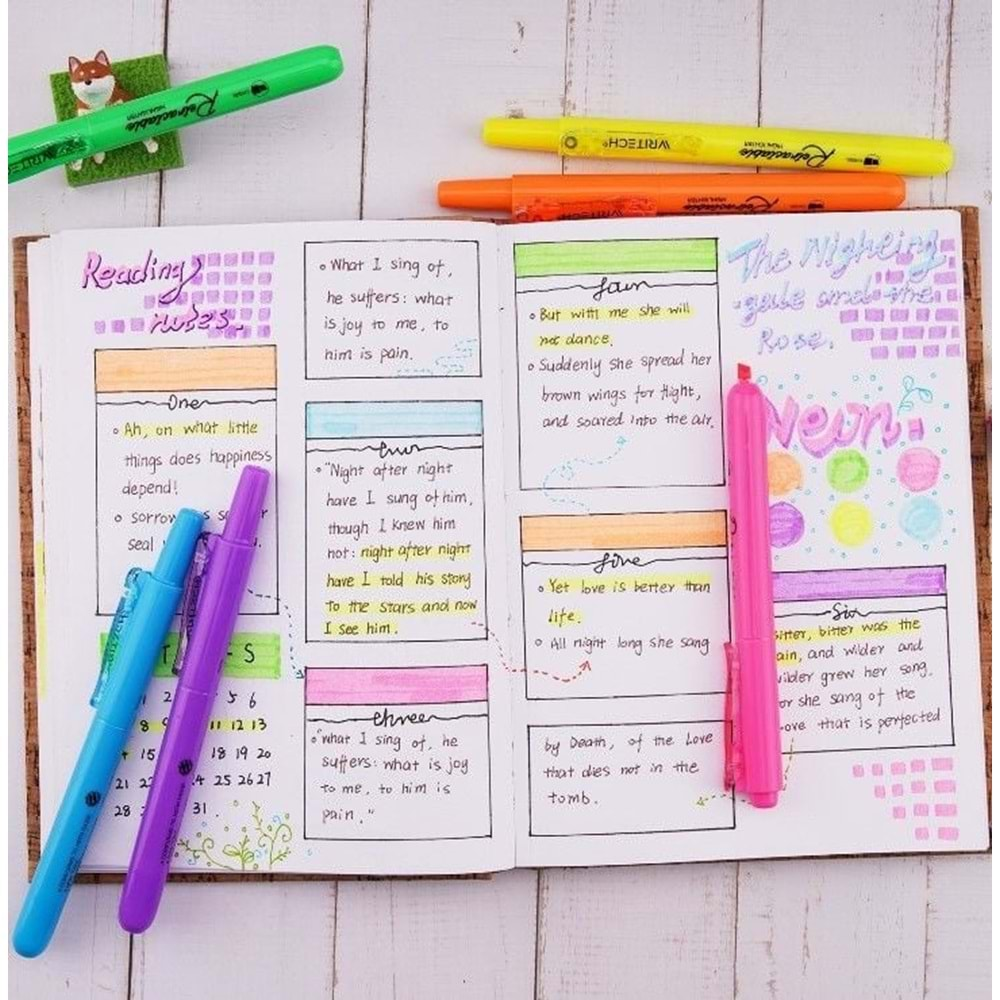 WRITECH
Retractable
HIGHLIGHTER
WRITECH
Retractable
HIGHLIGHTER
WRITECH
Retractable
HIGHLIGHTER
Reading
notes.
One
Ah, on what little
things does happiness
depend!
seal
T S
1 2 5 6
8 9 11 12 13
15 18 19 20
21 22 24 25 26 27
28 31.
What I sing of,
he suffers: what
is joy to me, to
him is pain.
"Night after night
have I sung of him,
though I knew him
not: night after night
have I told his story
to the stars and now
I see him.
three
"what I sing of, he
suffers: what is joy
to me, to him is
pain."
But with me she will
not dance.
Suddenly she spread her
brown wings for flight,
and soared into the air.
five
Yet love is better than
life.
All night long she sang
by Death, of the Love
that dies not in the
tomb.
The Nightin
gale and the
Rose.
Neon.
Six
bitter was the
and wilder and
grew her song.
she sang of the
that is perfected